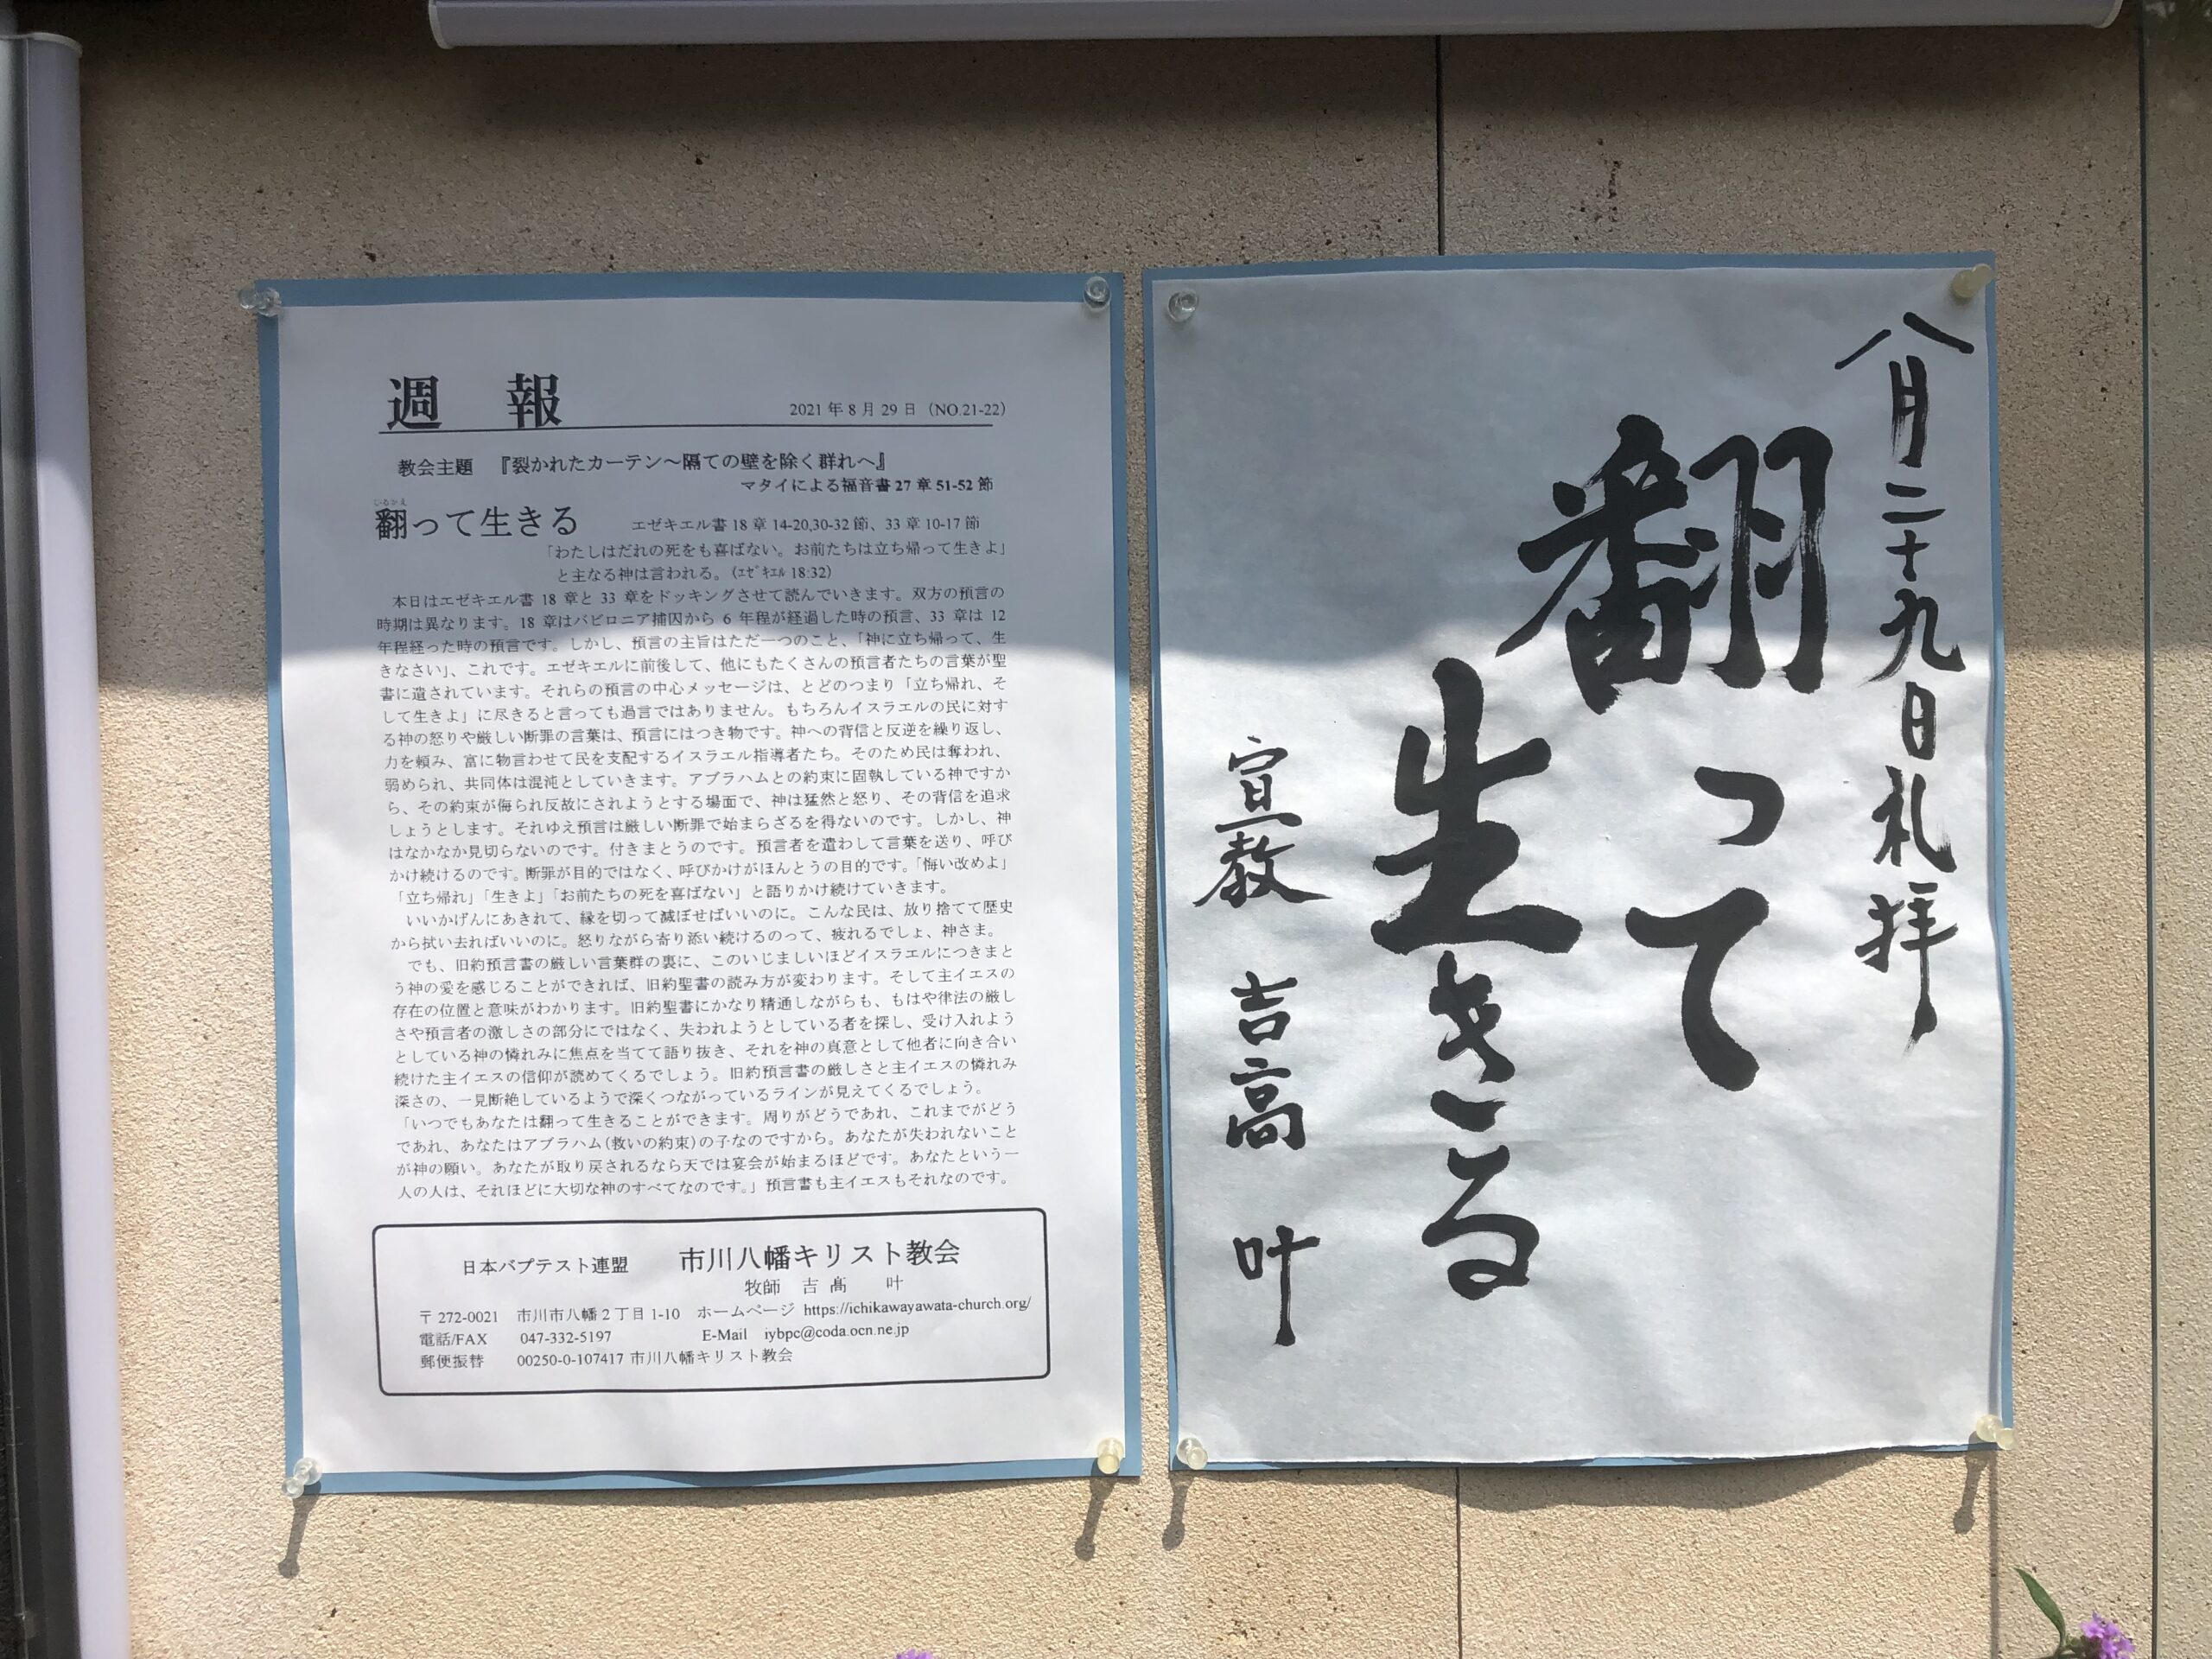 週 報
2021 年 8 月 29 日（NO.21-22）
教会主題 『裂かれたカーテン～隔ての壁を除く群れへ』
マタイによる福音書 27 章 51-52 節
翻って生きる エゼキエル書 18 章 14-20,30-32 節、33 章 10-17 節
「わたしはだれの死をも喜ばない。お前たちは立ち帰って生きよ」
と主なる神は言われる。（ｴｾﾞｷｴﾙ 18:32）
本日はエゼキエル書 18 章と 33 章をドッキングさせて読んでいきます。双方の預言の
時期は異なります。18 章はバビロニア捕囚から 6 年程が経過した時の預言、33 章は 12
年程経った時の預言です。しかし、預言の主旨はただ一つのこと、「神に立ち帰って、生
きなさい」、これです。エゼキエルに前後して、他にもたくさんの預言者たちの言葉が聖
書に遺されています。それらの預言の中心メッセージは、とどのつまり「立ち帰れ、そ
して生きよ」に尽きると言っても過言ではありません。もちろんイスラエルの民に対す
る神の怒りや厳しい断罪の言葉は、預言にはつき物です。神への背信と反逆を繰り返し、
力を頼み、富に物言わせて民を支配するイスラエル指導者たち。そのため民は奪われ、
弱められ、共同体は混沌としていきます。アブラハムとの約束に固執している神ですか
ら、その約束が侮られ反故にされようとする場面で、神は猛然と怒り、その背信を追求
しょうとします。それゆえ預言は厳しい断罪で始まらざるを得ないのです。しかし、神
はなかなか見切らないのです。付きまとうのです。預言者を遣わして言葉を送り、呼び
かけ続けるのです。断罪が目的ではなく、呼びかけがほんとうの目的です。「悔い改めよ」
「立ち帰れ」「生きよ」「お前たちの死を喜ばない」と語りかけ続けていきます。
いいかげんにあきれて、縁を切って滅ぼせばいいのに。こんな民は、放り捨てて歴史
から拭い去ればいいのに。怒りながら寄り添い続けるのって、疲れるでしょ、神さま。
でも、旧約預言書の厳しい言葉群の裏に、このいじましいほどイスラエルにつきまと
う神の愛を感じることができれば、旧約聖書の読み方が変わります。そして主イエスの
存在の位置と意味がわかります。旧約聖書にかなり精通しながらも、もはや律法の厳し
さや預言者の激しさの部分にではなく、失われようとしている者を探し、受け入れよう
としている神の憐れみに焦点を当てて語り抜き、それを神の真意として他者に向き合い
続けた主イエスの信仰が読めてくるでしょう。旧約預言書の厳しさと主イエスの憐れみ
深さの、一見断絶しているようで深くつながっているラインが見えてくるでしょう。
「いつでもあなたは翻って生きることができます。周りがどうであれ、これまでがどう
であれ、あなたはアブラハム（救いの約束）の子なのですから。あなたが失われないこと
が神の願い。あなたが取り戻されるなら天では宴会が始まるほどです。あなたという一
人の人は、それほどに大切な神のすべてなのです。」預言書も主イエスもそれなのです。
日本バプテスト連盟 市川八幡キリスト教会
牧師 吉髙 叶
〒272-0021 市川市八幡 2 丁目 1-10 ホームページ https://ichikawayawata-church.org/
電話/FAX 047-332-5197 E-Mail iybpc@coda.ocn.ne.jp
郵便振替 00250-0-107417 市川八幡キリスト教会
八月二十九日礼拝
翻って
生きる
宣教 吉高 叶